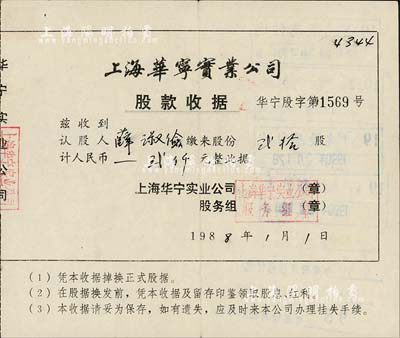 4344
上海華寧實業公司
股款收据
华宁股字第1569号
兹收到
认股人薛淑俭缴来股份 贰拾 股
计人民币 贰仟 元整此据
上海华宁实业公司 (章)
股务组 (章)
1988年1月1日
华宁实业公司
(1) 凭本收据掉换正式股据。
(2) 在股据换发前，凭本收据及留存印鉴领取股息红利。
(3) 本收据请妥为保存，如有遗失，应及时来本公司办理挂失手续。